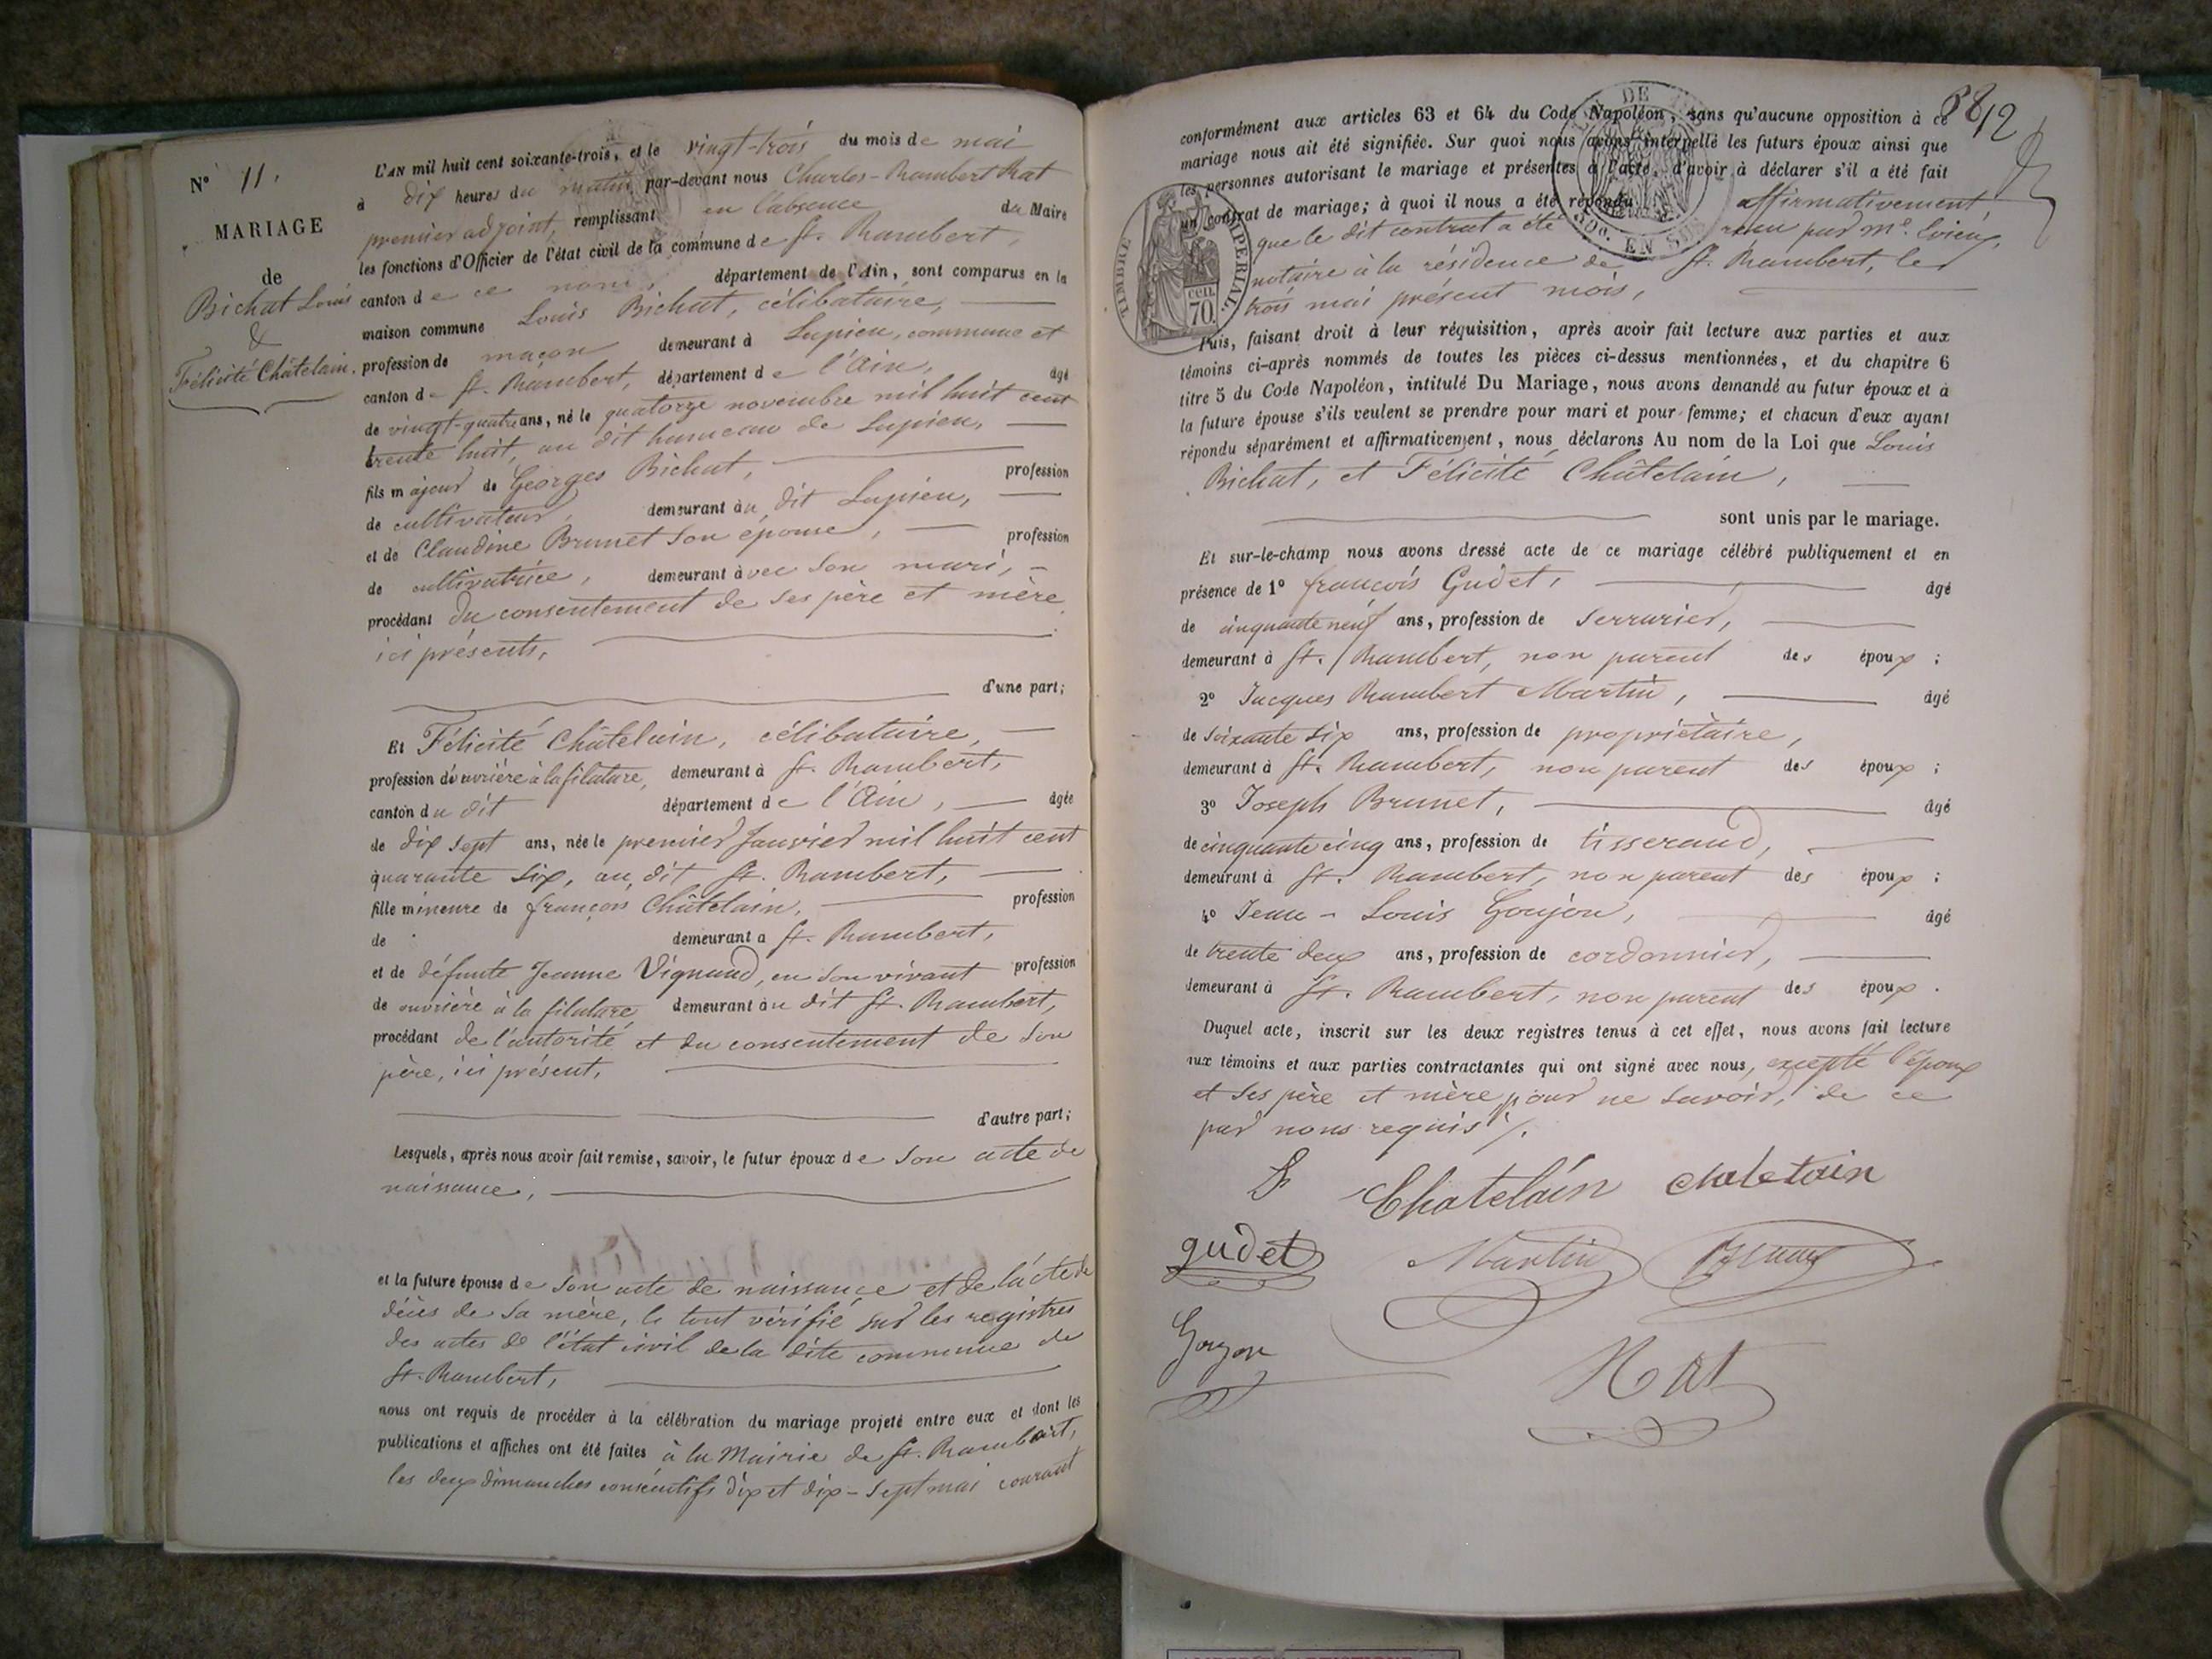 N° 11.
MARIAGE
de
Bichat Louis
&
Félicité Châtelain.
L'AN mil huit cent soixante-trois, et le vingt-trois du mois de mai
à dix heures du matin par-devant nous Charles-Rambert Rat
premier adjoint, remplissant en l'absence du Maire
les fonctions d'Officier de l'état civil de la commune de St. Rambert,
canton de ce nom, département de l'Ain, sont comparus en la
maison commune Louis Bichat, célibataire,
profession de maçon demeurant à Lupieu, commune et
canton de St. Rambert, département de l'Ain, âgé
de vingt-quatre ans, né le quatorze novembre mil huit cent
trente huit, au dit hameau de Lupieu,
fils majeur de Georges Bichat, profession
de cultivateur, demeurant au dit Lupieu,
et de Claudine Brunet son épouse, profession
de cultivatrice, demeurant avec son mari,
procédant du consentement de ses père et mère
ici présents,
d'une part;
Et Félicité Châtelain, célibataire,
profession d'ouvrière à la filature, demeurant à St. Rambert,
canton du dit département de l'Ain, âgée
de dix sept ans, née le premier Janvier mil huit cent
quarante six, au dit St. Rambert,
fille mineure de françois Châtelain, profession
de demeurant à St. Rambert,
et de défunte Jeanne Vignaud, en son vivant profession
de ouvrière à la filature demeurant au dit St. Rambert,
procédant de l'autorité et du consentement de son
père, ici présent,
d'autre part;
Lesquels, après nous avoir fait remise, savoir, le futur époux de son acte de
naissance,
et la future épouse de son acte de naissance et de l'acte de
décès de sa mère, le tout vérifié sur les registres
des actes de l'état civil de la dite commune de
St. Rambert,
nous ont requis de procéder à la célébration du mariage projeté entre eux et dont les
publications et affiches ont été faites à la Mairie de St. Rambert,
les deux dimanches consécutifs dix et dix-sept mai courant
12
conformément aux articles 63 et 64 du Code Napoléon, sans qu'aucune opposition à ce
mariage nous ait été signifiée. Sur quoi nous avons interpellé les futurs époux ainsi que
les personnes autorisant le mariage et présentes à l'acte, d'avoir à déclarer s'il a été fait
un contrat de mariage; à quoi il nous a été répondu affirmativement,
que le dit contrat a été reçu par Me.
notaire à la résidence de St. Rambert, le
trois mai présent mois,
TIMBRE IMPERIAL
cen.
70.
Puis, faisant droit à leur réquisition, après avoir fait lecture aux parties et aux
témoins ci-après nommés de toutes les pièces ci-dessus mentionnées, et du chapitre 6
titre 5 du Code Napoléon, intitulé Du Mariage, nous avons demandé au futur époux et à
la future épouse s'ils veulent se prendre pour mari et pour femme; et chacun d'eux ayant
répondu séparément et affirmativement, nous déclarons Au nom de la Loi que Louis
Bichat, et Félicité Châtelain,
sont unis par le mariage.
Et sur-le-champ nous avons dressé acte de ce mariage célébré publiquement et en
présence de 1° françois Gudet, âgé
de cinquante neuf ans, profession de serrurier,
demeurant à St. Rambert, non parent des époux;
2° Jacques Rambert Martin, âgé
de soixante six ans, profession de propriétaire,
demeurant à St. Rambert, non parent des époux;
3° Joseph Brunet, âgé
de cinquante cinq ans, profession de tisserand,
demeurant à St. Rambert, non parent des époux;
4° Jean-Louis Goujon, âgé
de trente deux ans, profession de cordonnier,
demeurant à St. Rambert, non parent des époux.
Duquel acte, inscrit sur les deux registres tenus à cet effet, nous avons fait lecture
aux témoins et aux parties contractantes qui ont signé avec nous, excepté l'époux
et ses père et mère pour ne savoir, de ce
par nous requis /.
Chatelain chaletain
gudet Martin Brunet
Goujon
Rat